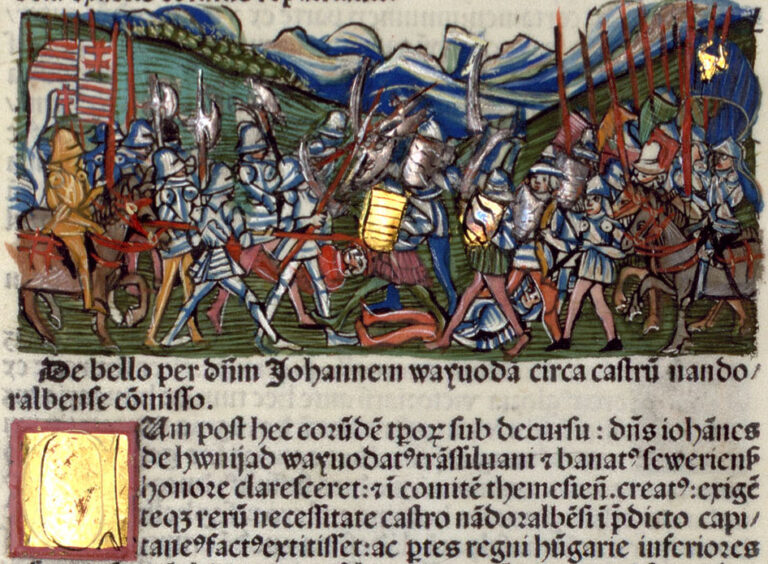 De bello per dñm Johannem wayuoda circa castrū nando/
ralbense cōmisso.
CUm post hec eorūdē tꝑoꝝ sub decursu : dñs iohānes
de hwnijad wayuodatꝰ trāssiluani ⁊ banatꝰ sewerienß
honore claresceret: ⁊ ī comitē themesień. creatꝰ: exigē
teqꝫ rerū necessitate castro nādoralbēsi ī p̄dicto capi/
taneꝰ factꝰ extitisset: ac ꝑtes regni hūgarie inferiores